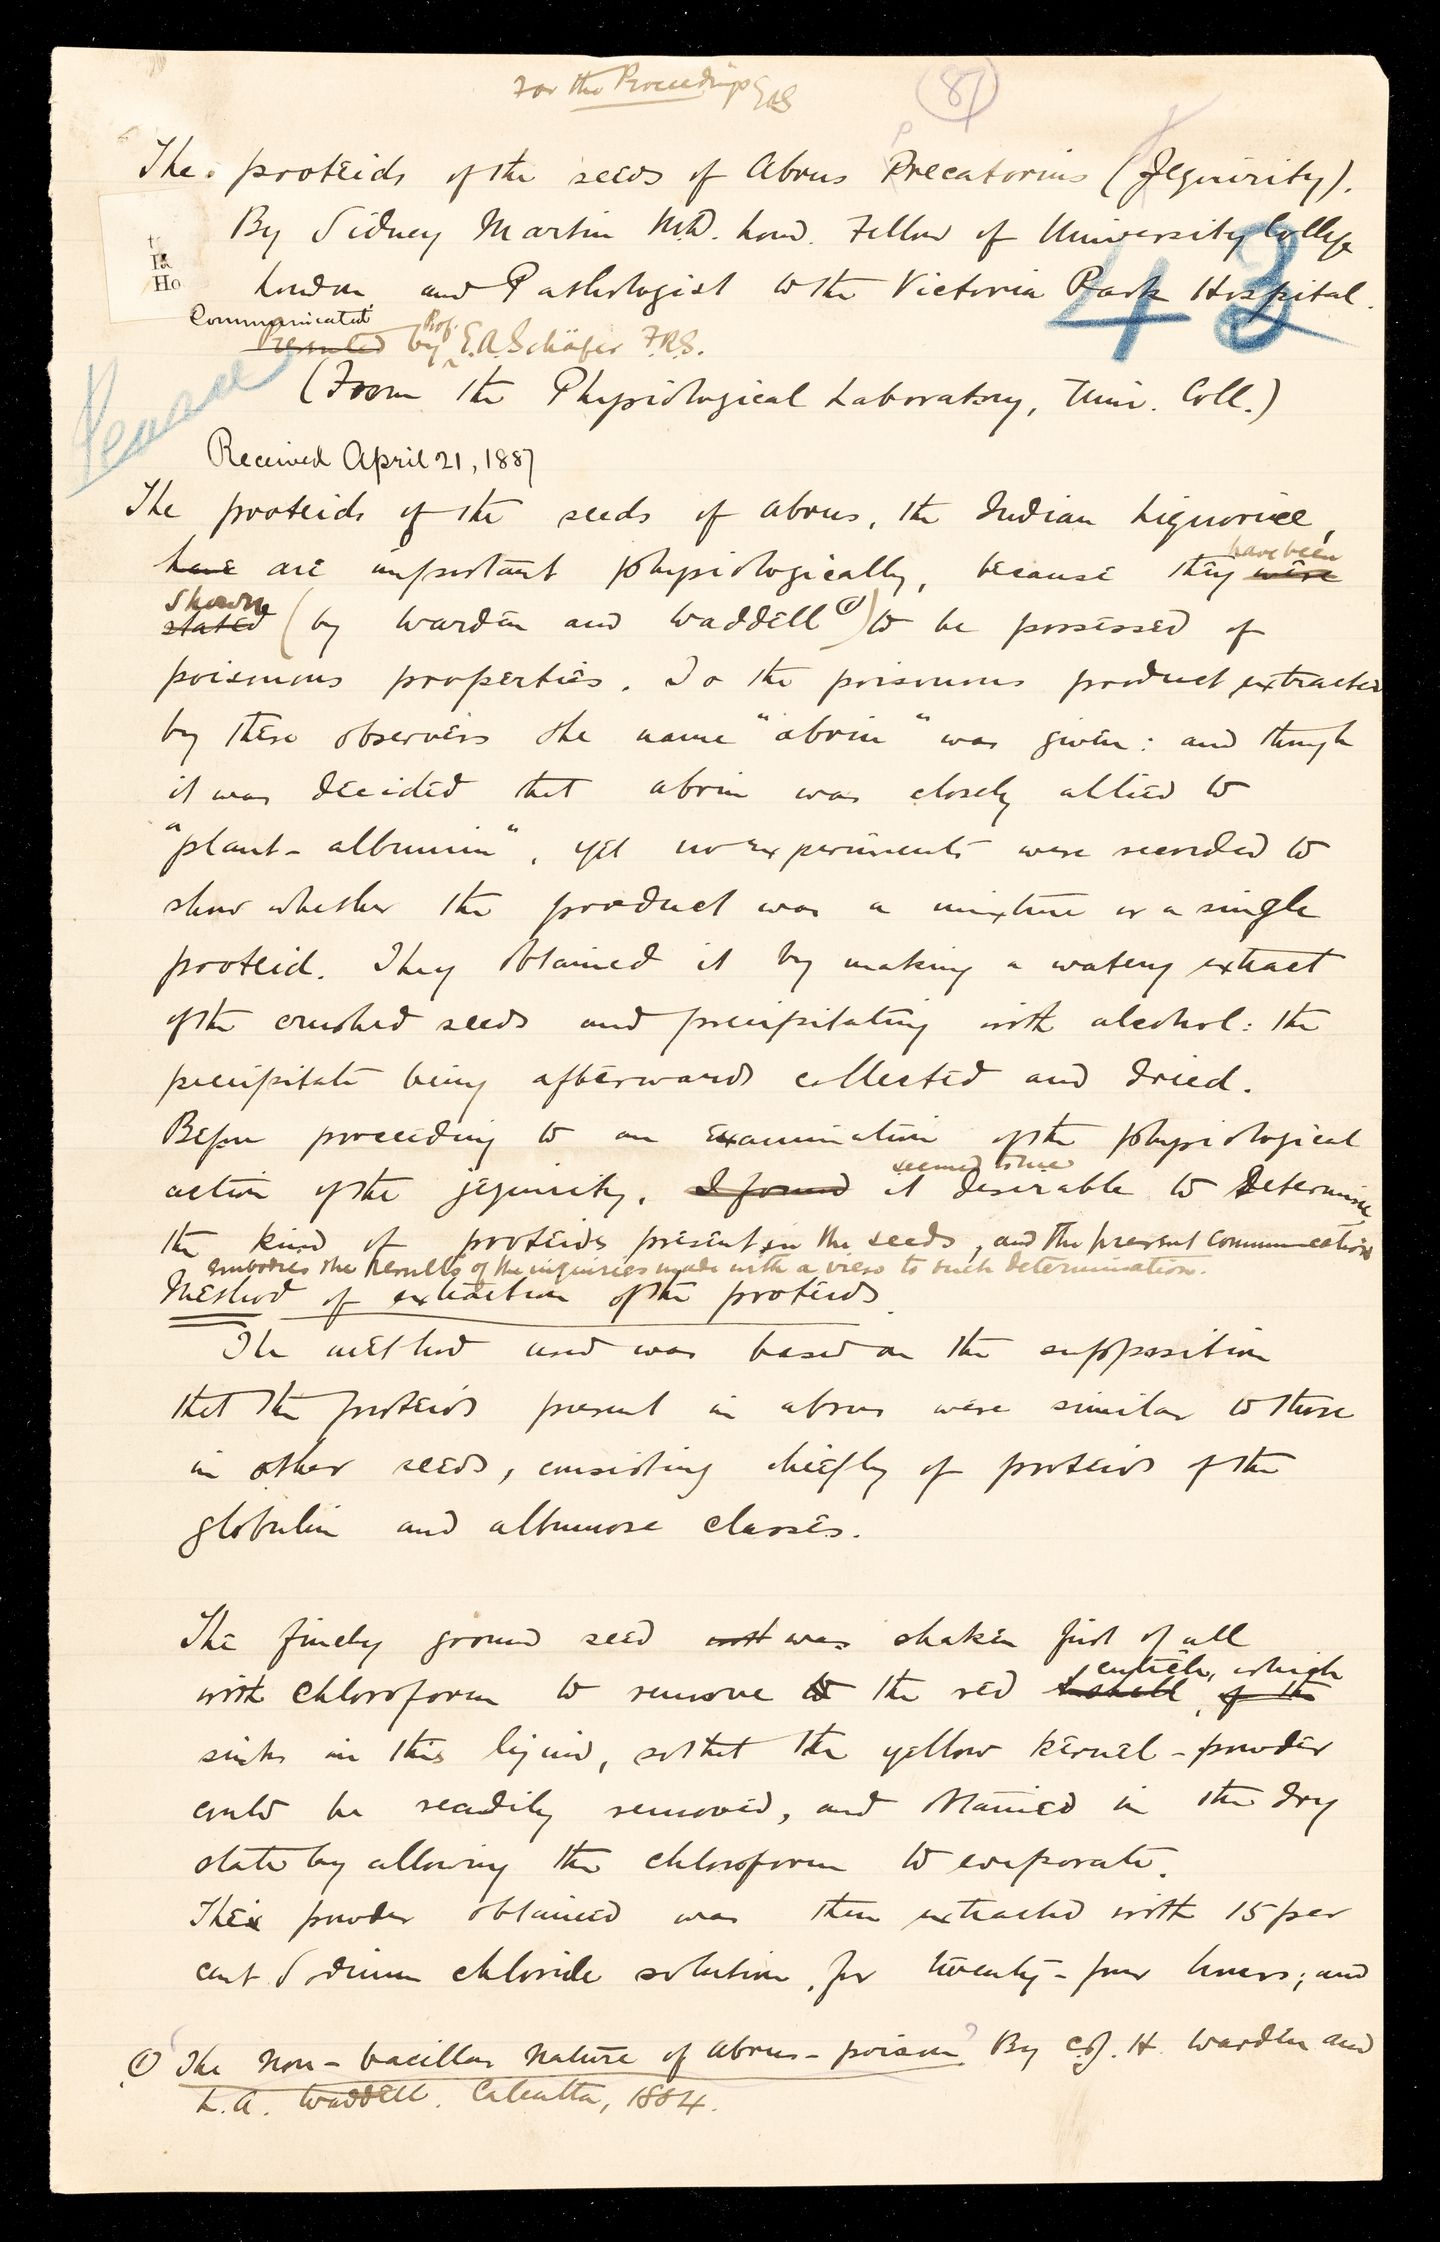 For the Proceedings EAS
87
The proteids of the seeds of Abrus Precatorius (Jequirity).
By Sidney Martin M.D. Lond. Fellow of University College
London, and Pathologist to the Victoria Park Hospital.
43
Ho
Communicated
Presented by Prof. E.A. Schäfer F.R.S.
(From the Physiological Laboratory, Univ. Coll.)
Received April 21, 1887
The proteids of the seeds of abrus, the Indian liquorice,
have are important physiologically, because they were have been
stated shown (by Warden and Waddell (1)) to be possessed of
poisonous properties. To the poisonous product extracted
by these observers the name "abrin" was given: and though
it was decided that abrin was closely allied to
"plant-albumin", yet no experiments were recorded to
show whether the product was a mixture or a single
proteid. They obtained it by making a watery extract
of the crushed seeds and precipitating with alcohol: the
precipitate being afterwards collected and dried.
Before proceeding to an examination of the physiological
action of the jequirity, I found it seemed to me desirable to determine
the kind of proteids present in the seeds, and the present communication
embodies the results of the inquiries made with a view to such determination.
Method of extraction of the proteids.
The method used was based on the supposition
that the proteids present in abrus were similar to those
in other seeds, consisting chiefly of proteids of the
globulin and albumose classes.
The finely ground seed was shaken first of all
with chloroform to remove the red shell of the cuticle, which
sinks in this liquid, so that the yellow kernel-powder
could be readily removed, and obtained in the dry
state by allowing the chloroform to evaporate.
The powder obtained was then extracted with 15 per
cent Sodium chloride solution, for twenty-four hours; and
(1) The Non-bacillar Nature of Abrus-poison. By C.J.H. Warden and
L.A. Waddell. Calcutta, 1884.